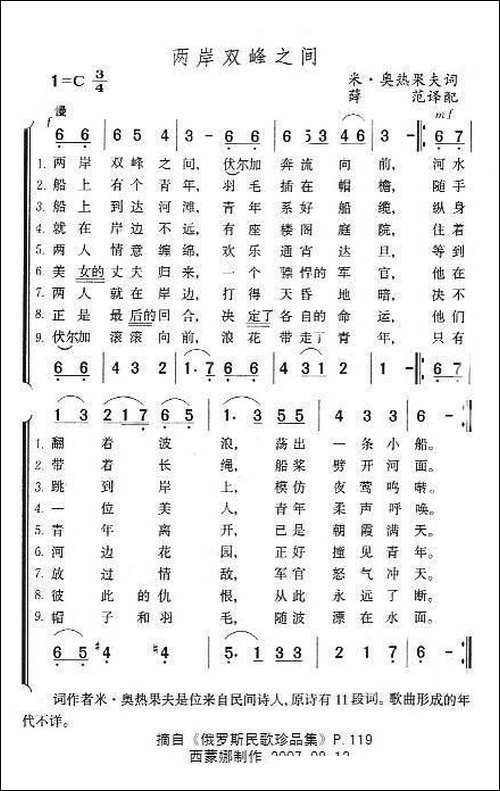 两岸双峰之间
1=C 3/4
米·奥热果夫词
薛 范译配
慢
f
mf
6 6 6 5 4 3 - 6 6 4 3 4 5 4 6 3 - 6 7
1. 两岸双峰之间，伏尔加奔流向前，河水
2. 船上有个青年，羽毛插在帽檐，随手
3. 船上到达河滩，青年系好船缆，纵身
4. 就在岸边不远，有座楼阁庭院，住着
5. 两人情意缠绵，欢乐通宵达旦，等到
6. 美女的丈夫归来，一个骠悍的军官，他在
7. 两人就在岸边，打得天昏地暗，决不
8. 正是最后的回合，决定了各自的命运，他们
9. 伏尔加滚滚向前，浪花带走了青年，只有
6 6 4 3 2 1·7 6 6 4 3 1 2 1 - 6 7
1 3 2 1 7 6 5 1·3 5 5 4 2 3 6 -
1. 翻着波浪，荡出一条小船。
2. 带着长绳，船桨劈开河面。
3. 跳到岸上，模仿夜莺鸣啭。
4. 一位美人，青年柔声呼唤。
5. 青年离开，已是朝霞满天。
6. 河边花园，正好撞见青年。
7. 放过情敌，军官怒气冲天。
8. 彼此的仇恨，从此永远了断。
9. 帽子和羽毛，随波漂在水面。
6 5 #4 ♮4 5·6 7 5 4 2 3 6 -
词作者米·奥热果夫是位来自民间诗人，原诗有11段词。歌曲形成的年
代不详。
摘自《俄罗斯民歌珍品集》P.119
西蒙娜制作 2007.08.12